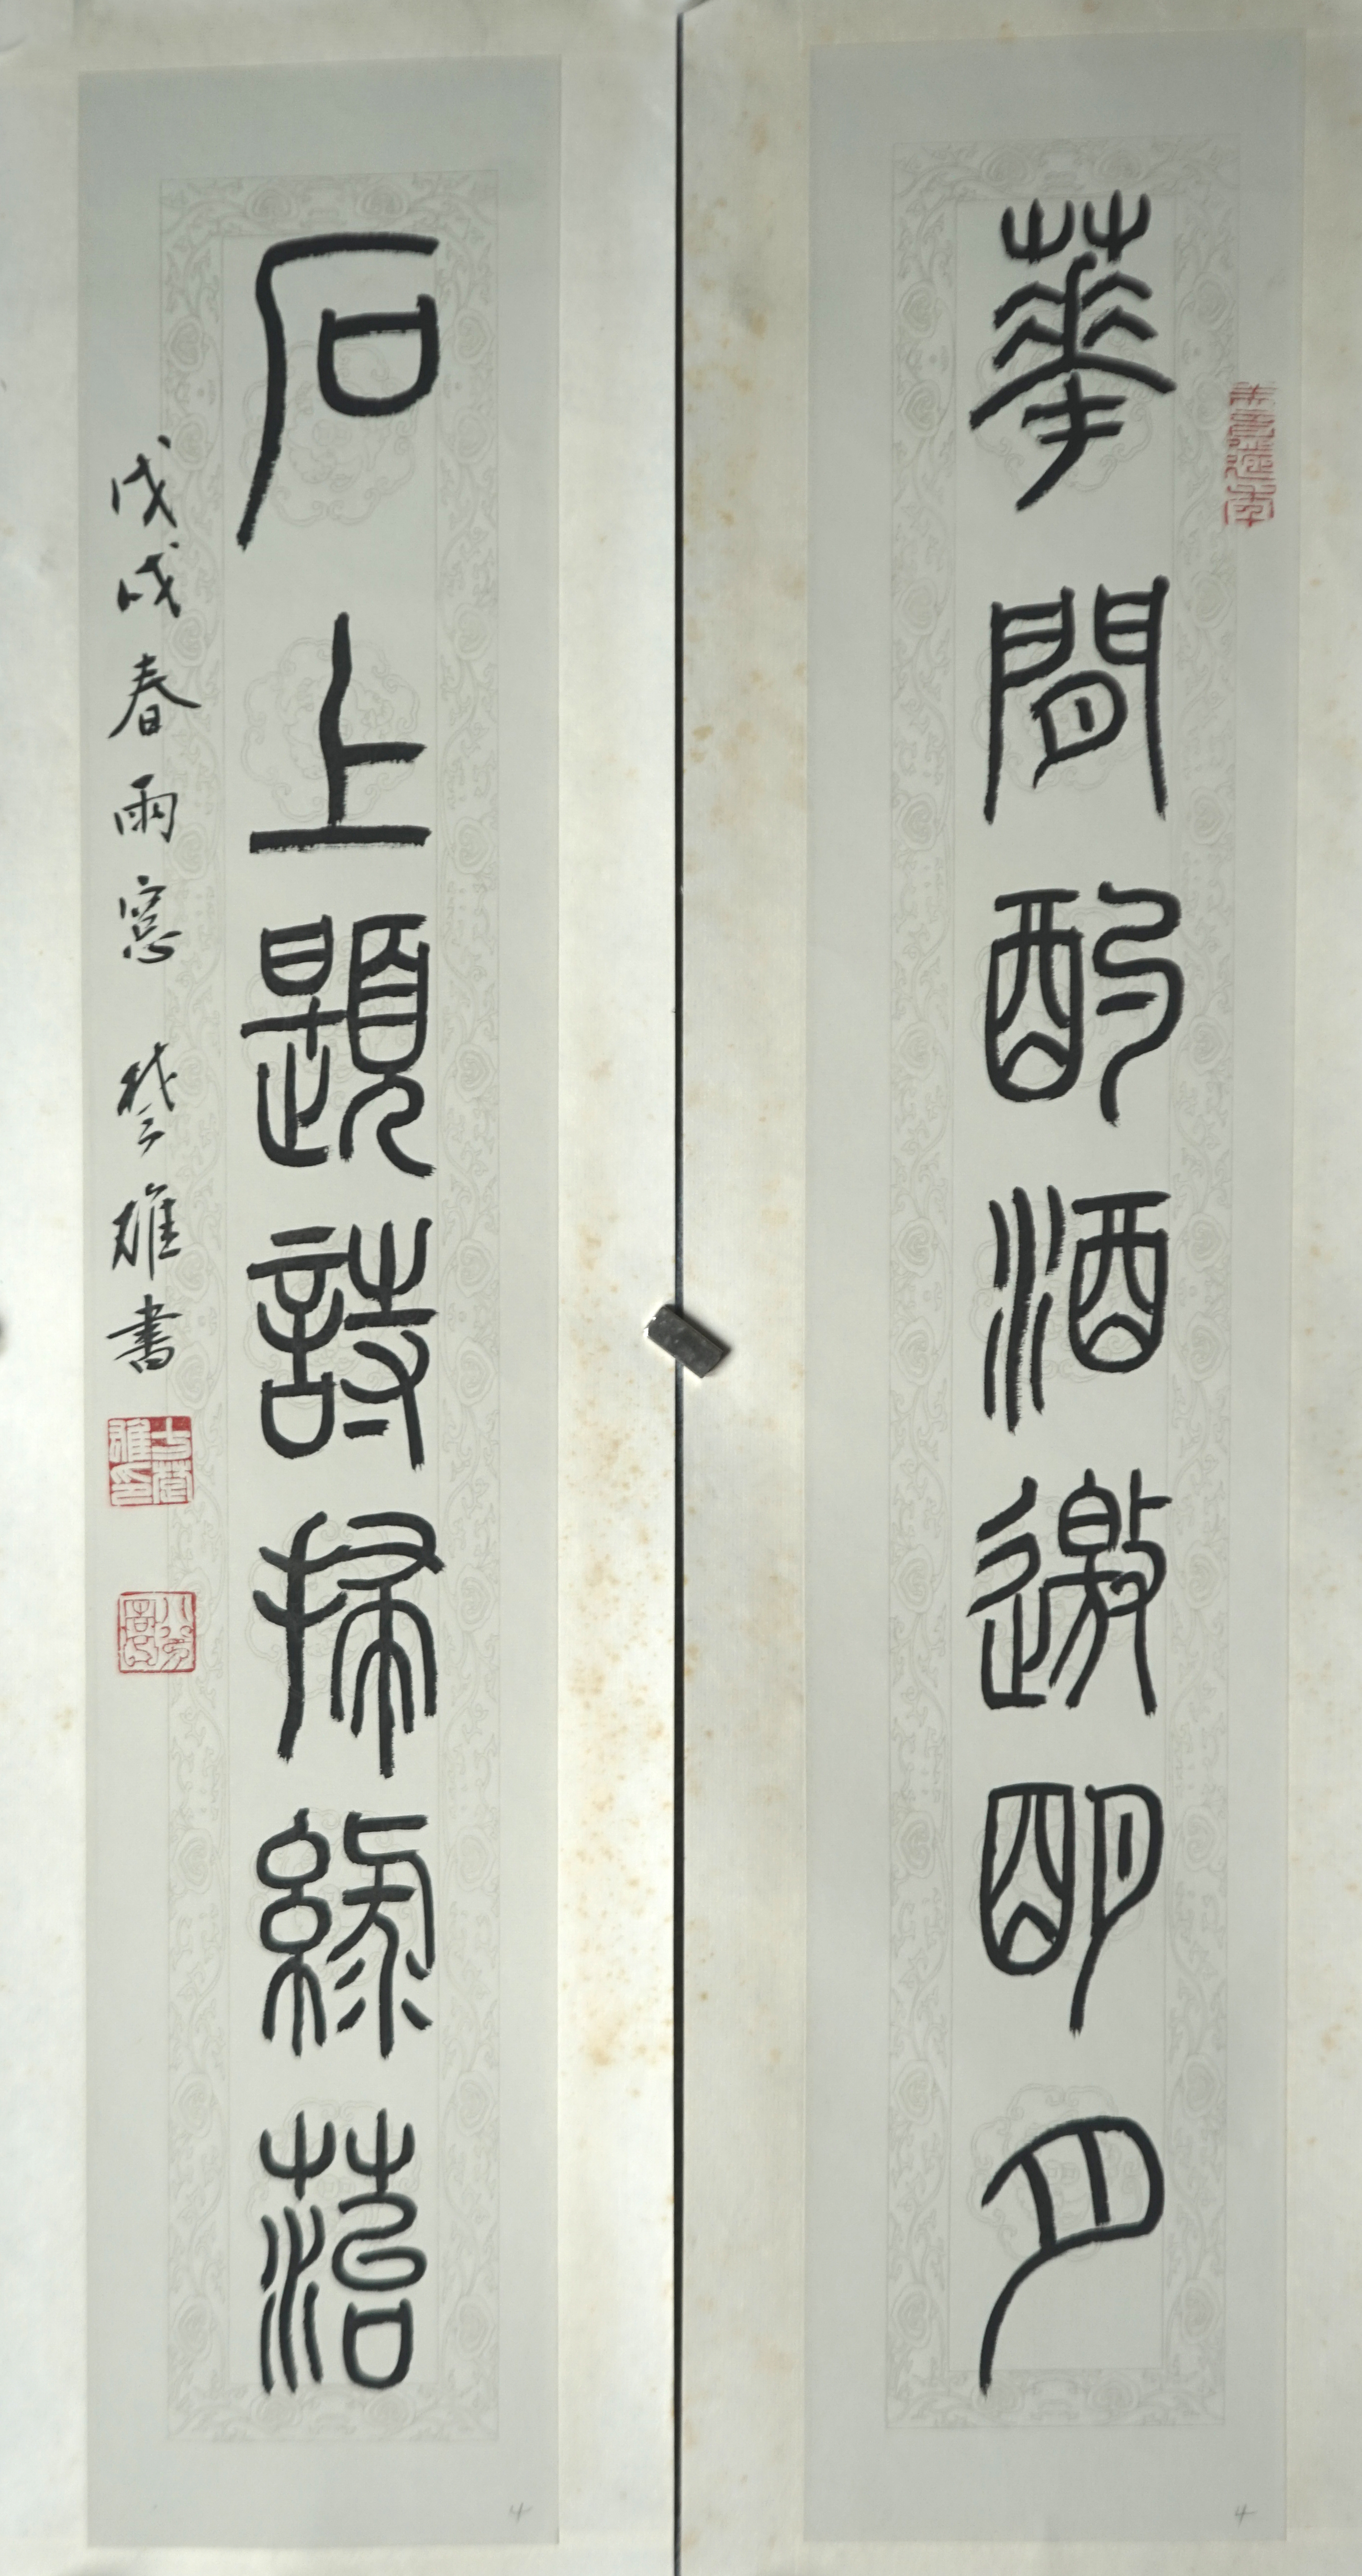 華間酌酒邀明月
石上題詩掃綠苔
戊戌春雨窓 楚雄書
八分宮
4
4